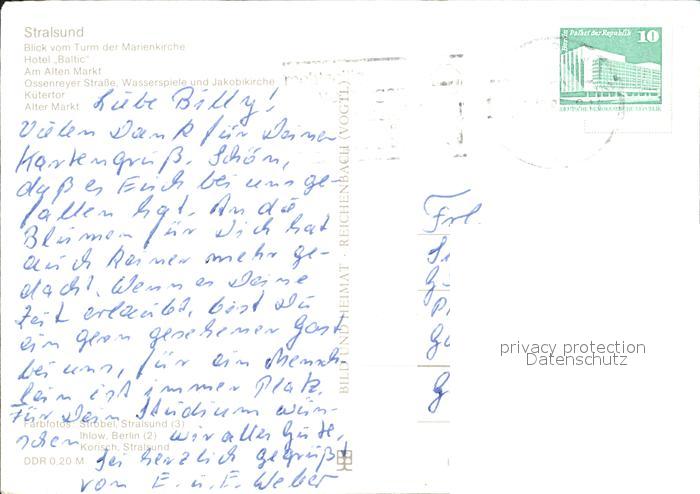 Stralsund
Blick vom Turm der Marienkirche
Hotel „Baltic"
Am Alten Markt
Ossenreyer Straße, Wasserspiele und Jakobikirche
Kütertor
Alter Markt
Liebe Billy!
Vielen Dank für Deinen
Kartengruß. Schön,
daß es Euch bei uns ge-
fallen hat. An die
Blumen für Dich hat
auch keiner mehr ge-
dacht. Wenn es Deine
Zeit erlaubt, bist Du
ein gern gesehener Gast
bei uns, für ein Mensch-
lein ist immer Platz.
Für Dein Studium wün-
schen wir alles Gute.
Sei herzlich gegrüßt
von E. u. E. Weber
Farbfotos: Strobel, Stralsund (3)
Ihlow, Berlin (2)
Korisch, Stralsund
DDR 0,20 M
BILD UND HEIMAT · REICHENBACH (VOGTL)
Berlin, Palast der Republik
10
DEUTSCHE DEMOKRATISCHE REPUBLIK
Frl.
privacy protection
Datenschutz